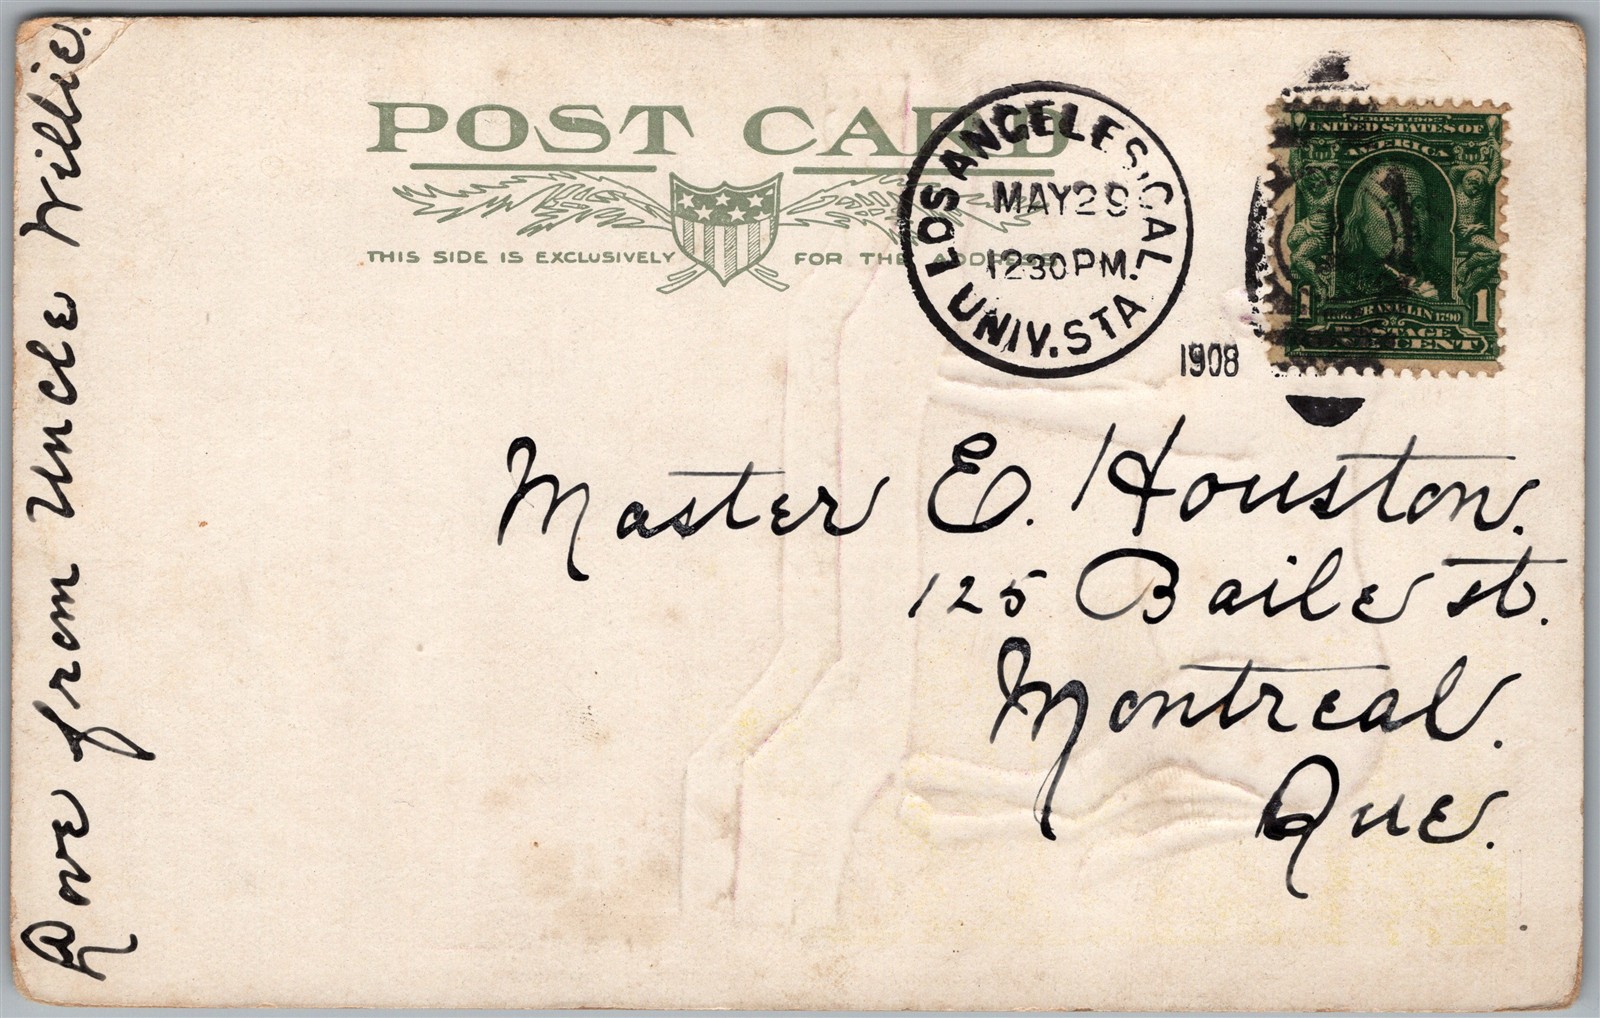 POST CARD
THIS SIDE IS EXCLUSIVELY FOR THE ADDRESS
LOS ANGELES, CAL.
MAY 29
12 30 PM.
UNIV. STA
1908
SERIES 1902
UNITED STATES OF
AMERICA
1 FRANKLIN 1790 1
POSTAGE
ONE CENT
Master E. Houston.
125 Baile st.
Montreal.
Que.
Love from Uncle Willie.